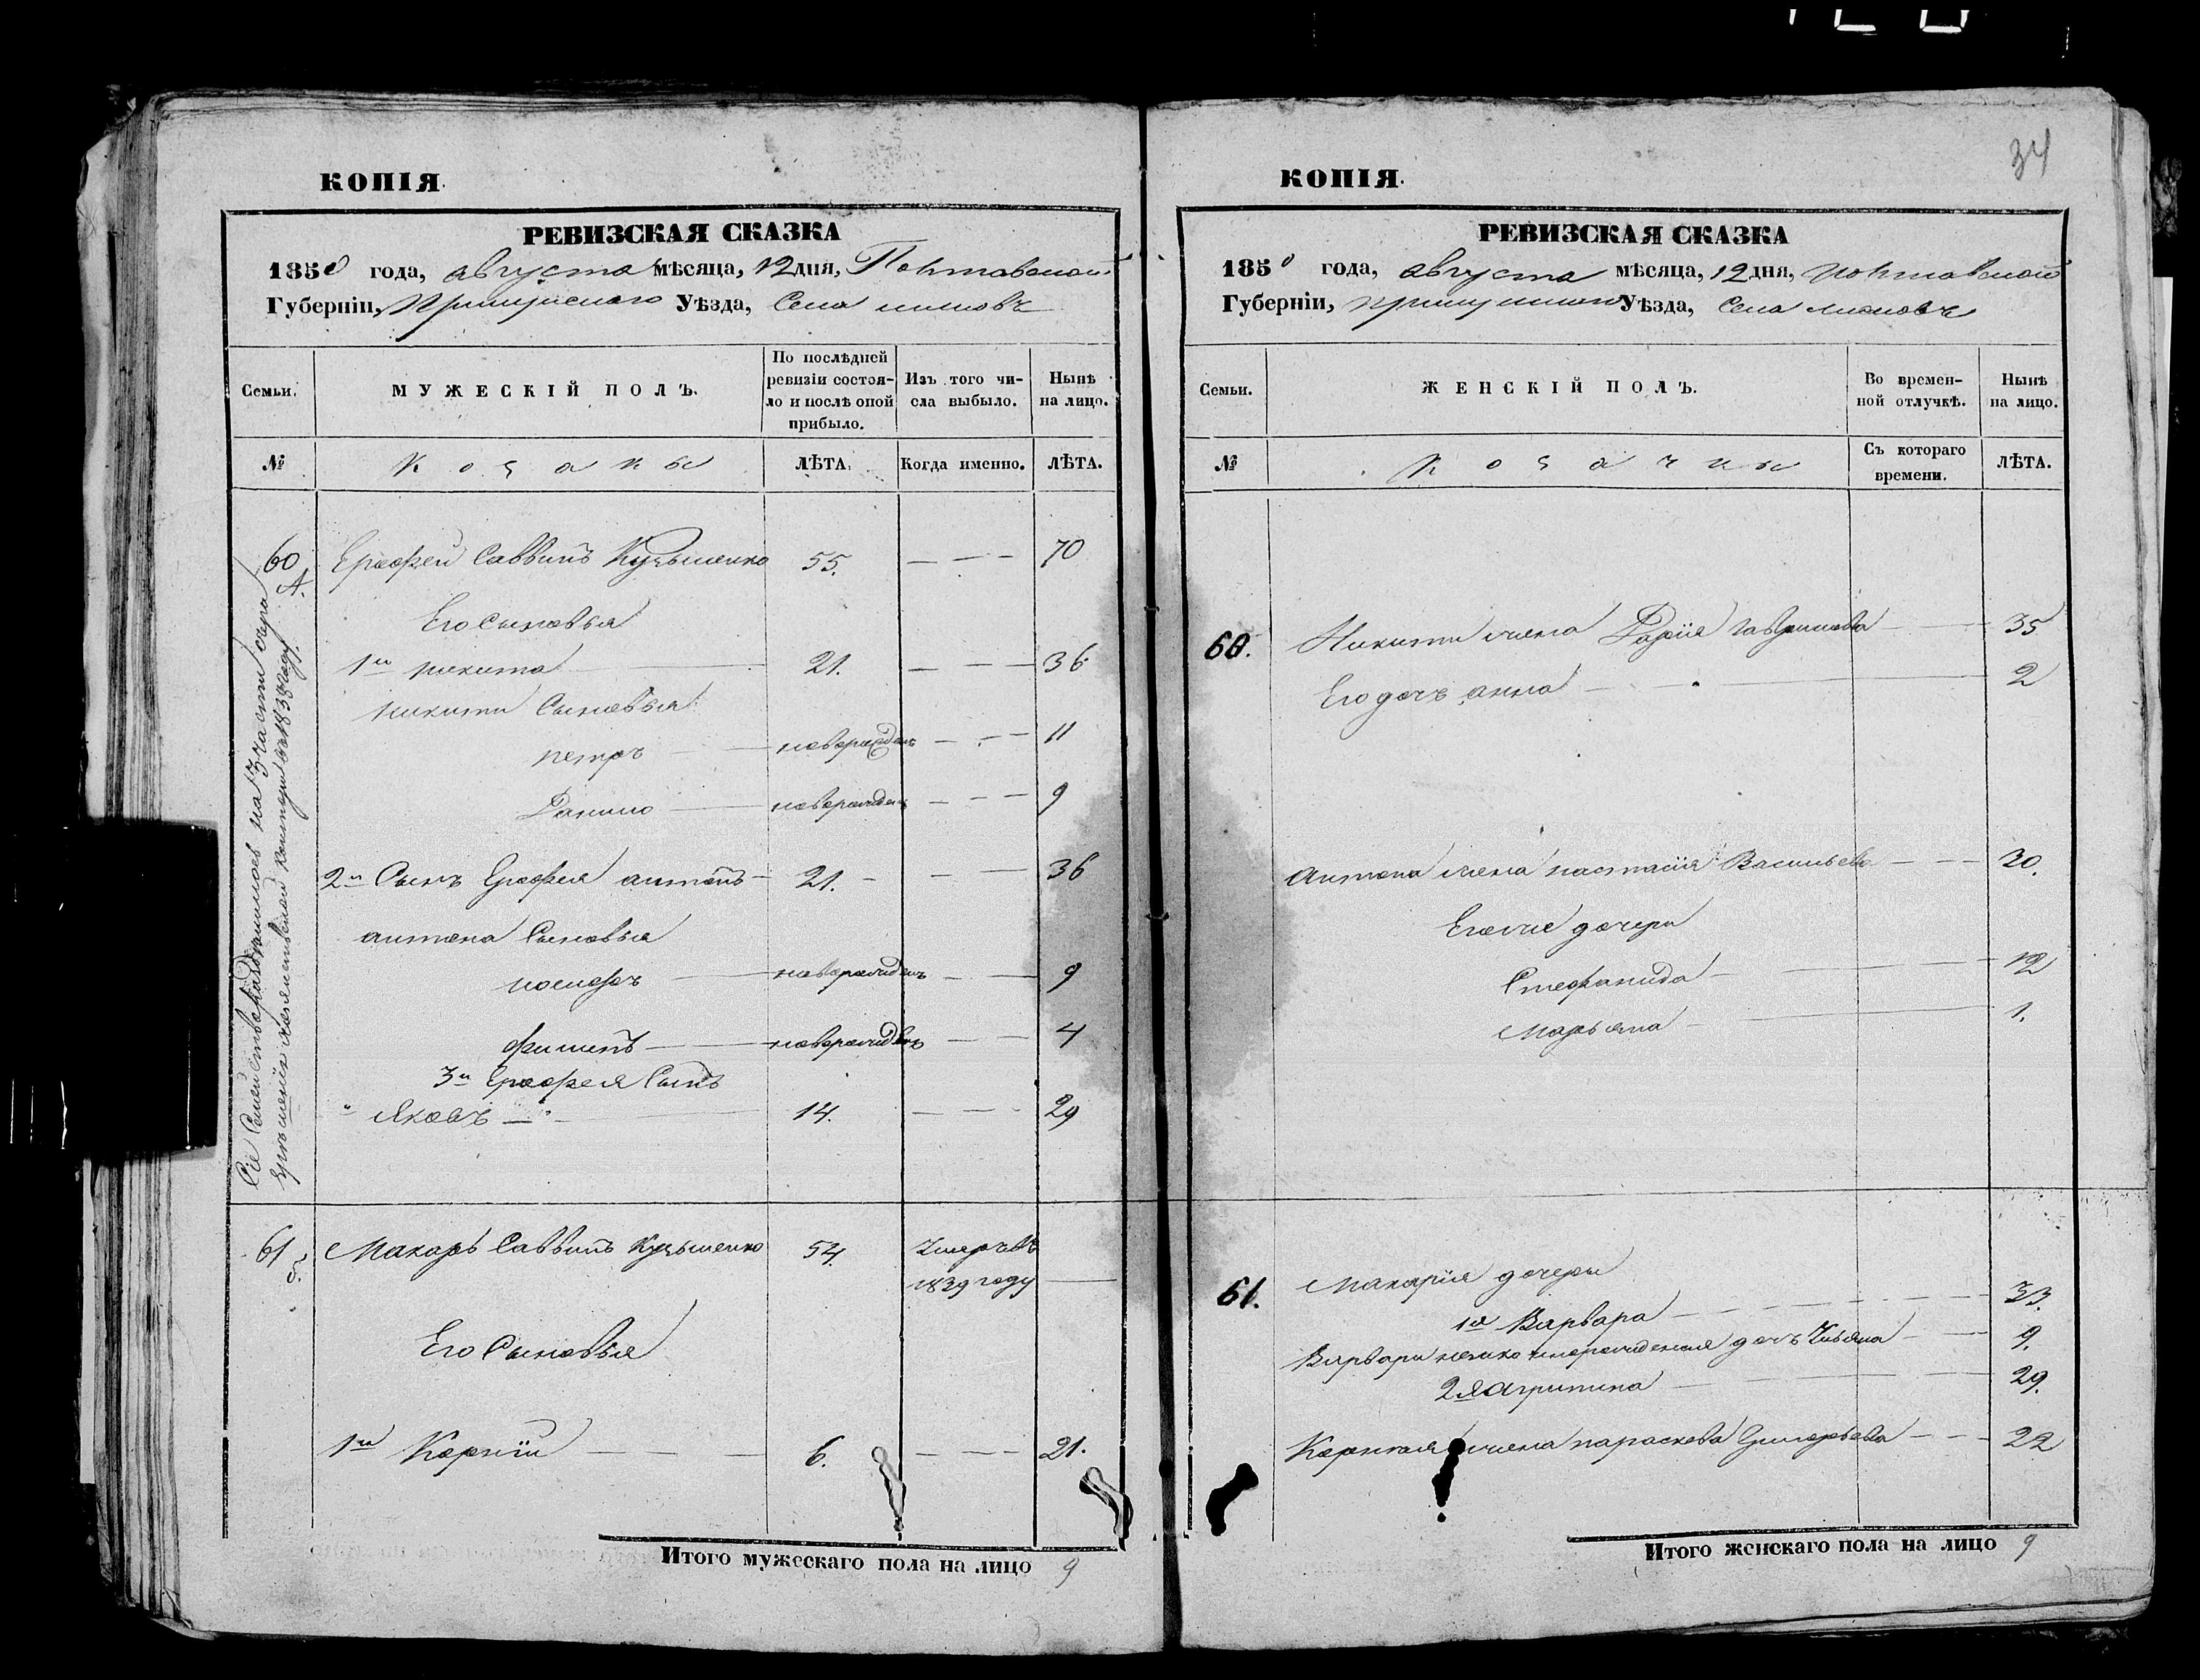 34
КОПІЯ.
РЕВИЗСКАЯ СКАЗКА
1850 года, августа мѣсяца, 12 дня, Полтавской
Губерніи, Прилуцкого Уѣзда, Села
Семьи.
МУЖЕСКІЙ ПОЛЪ.
По послѣдней
ревизіи состоя-
ло и послѣ оной
прибыло.
Изъ того чи-
сла выбыло.
Нынѣ
на лицо.
№
Козаки
ЛѢТА.
Когда именно.
ЛѢТА.
60 Ерофей Саввинъ Кузьменко 55. — — — 70
А.
Его Сыновья
1й никита 21. — — — 36
никити Сыновья
петръ новорожденъ — — — 11
Данило новорожденъ — — — 9
2й Сынъ Ерофея антонъ 21. — — — 36
антона Сыновья
иосифъ новорожденъ — — 9
филипъ новорожденъ — — 4
3й Ерофея Сынъ
Яковъ 14. — — — 29
Сіе Семейство на 3 части
въ 1838 году.
61 Макаръ Саввинъ Кузьменко 54. Умеръ въ
1839 году —
Его Сыновья
1й Корній 6. — — — 21.
Итого мужескаго пола на лицо 9
КОПІЯ.
РЕВИЗСКАЯ СКАЗКА
1850 года, августа мѣсяца, 12 дня, полтавской
Губерніи, Уѣзда, Села
Семьи.
ЖЕНСКІЙ ПОЛЪ.
Во времен-
ной отлучкѣ.
Нынѣ
на лицо.
№
Козачки
Съ котораго
времени.
ЛѢТА.
60. Никити жена Дарія Гаврилова — 35
Его дочъ анна — 2
Антона жена настасія Васильева — — — 30.
Его же дочери
Стефанида — 12
Марьяна — 1.
61. Макарія дочери
1я Варвара — 33.
Варвари дочъ Ульяна — 9.
2я Агрипина — 29.
Корнія жена параскева Григорьева — — — 22
Итого женскаго пола на лицо 9